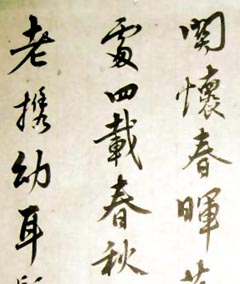 関懷春暉
處四載春秋
老携幼耳